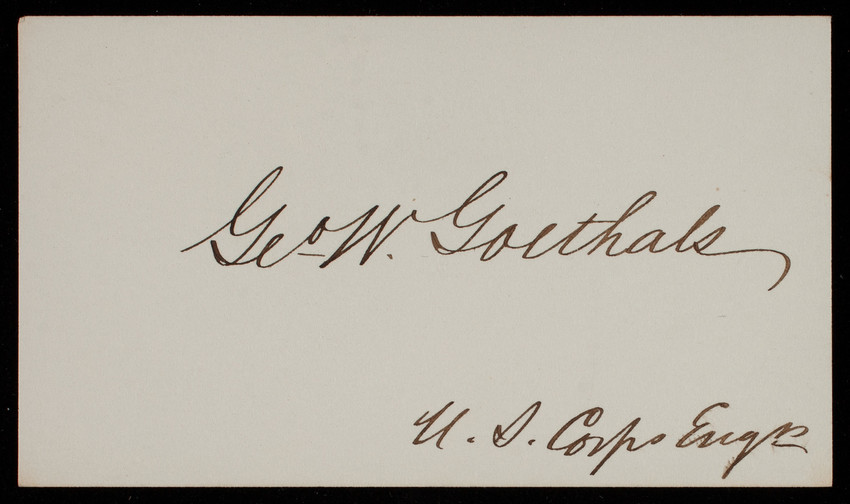 Geo W. Goethals
U. S. Corps Engrs